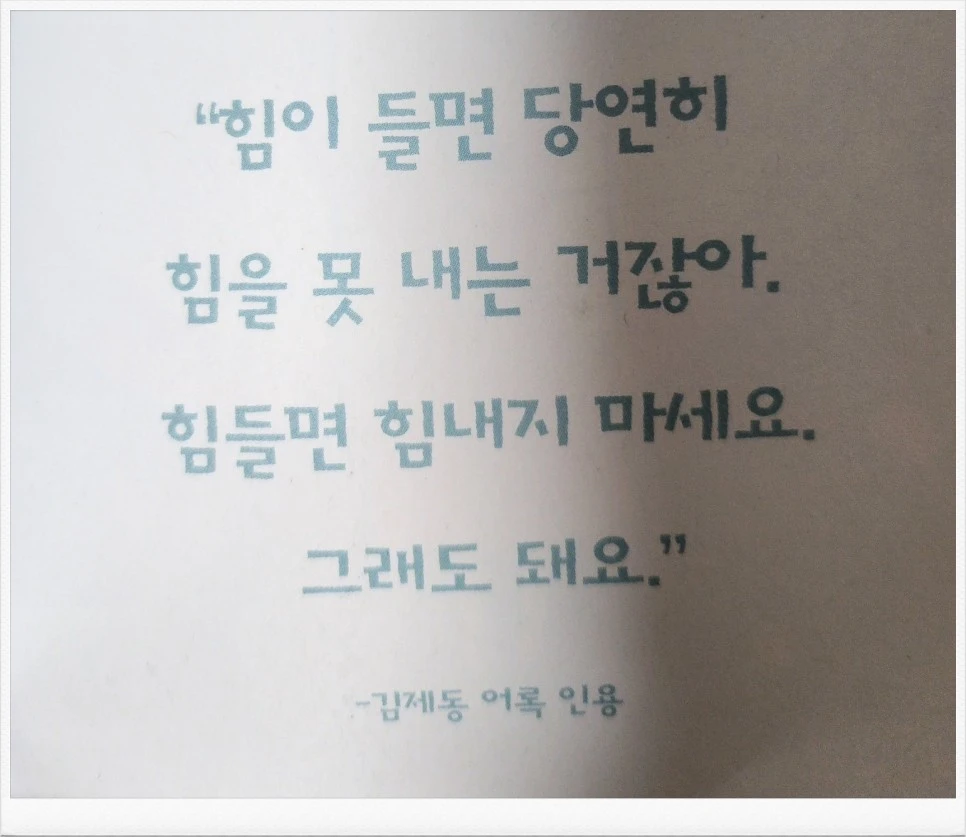 “힘이 들면 당연히
힘을 못 내는 거잖아.
힘들면 힘내지 마세요.
그래도 돼요.”
-김제동 어록 인용